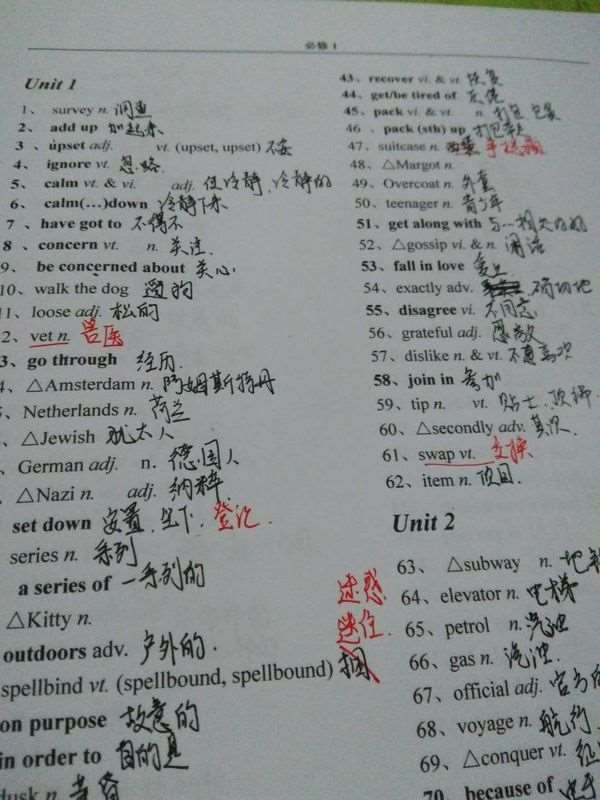 必修 1
Unit 1
1、survey n. 调查
2、add up 加起来
3、upset adj. vt. (upset, upset) 不安
4、ignore vt. 忽略
5、calm vt. & vi. adj. 使冷静、冷静的
6、calm(…)down 冷静下来
7、have got to 不得不
8、concern vt. n. 关注
9、be concerned about 关心
10、walk the dog 遛狗
11、loose adj. 松的
2、vet n. 兽医
3、go through 经历
、△Amsterdam n. 阿姆斯特丹
、Netherlands n. 荷兰
、△Jewish 犹太人
、German adj. n. 德国人
、△Nazi n. adj. 纳粹
set down 安置、坐下、登记
series n. 系列
a series of 一系列的
△Kitty n.
outdoors adv. 户外的
迷惑
迷住
spellbind vt. (spellbound, spellbound) 捆
on purpose 故意的
in order to 目的是
dusk n. 黄昏
43、recover vi. & vt. 恢复
44、get/be tired of 厌倦
45、pack vi. & vt. n. 打包 包裹
46、pack (sth) up
47、suitcase n. 手提箱
48、△Margot n.
49、Overcoat n. 外套
50、teenager n. 青少年
51、get along with 与…相处
52、△gossip vi. & n. 闲话
53、fall in love 爱上
54、exactly adv. 确切地
55、disagree vi. 不同意
56、grateful adj.
57、dislike n. & vt. 不喜欢
58、join in 参加
59、tip n. vt. 贴士
60、△secondly adv. 其次
61、swap vt. 交换
62、item n. 项目
Unit 2
63、△subway n. 地
64、elevator n. 电梯
65、petrol n. 汽油
66、gas n. 汽油
67、official adj. 官方
68、voyage n. 航行
69、△conquer vt. 征
70、because of